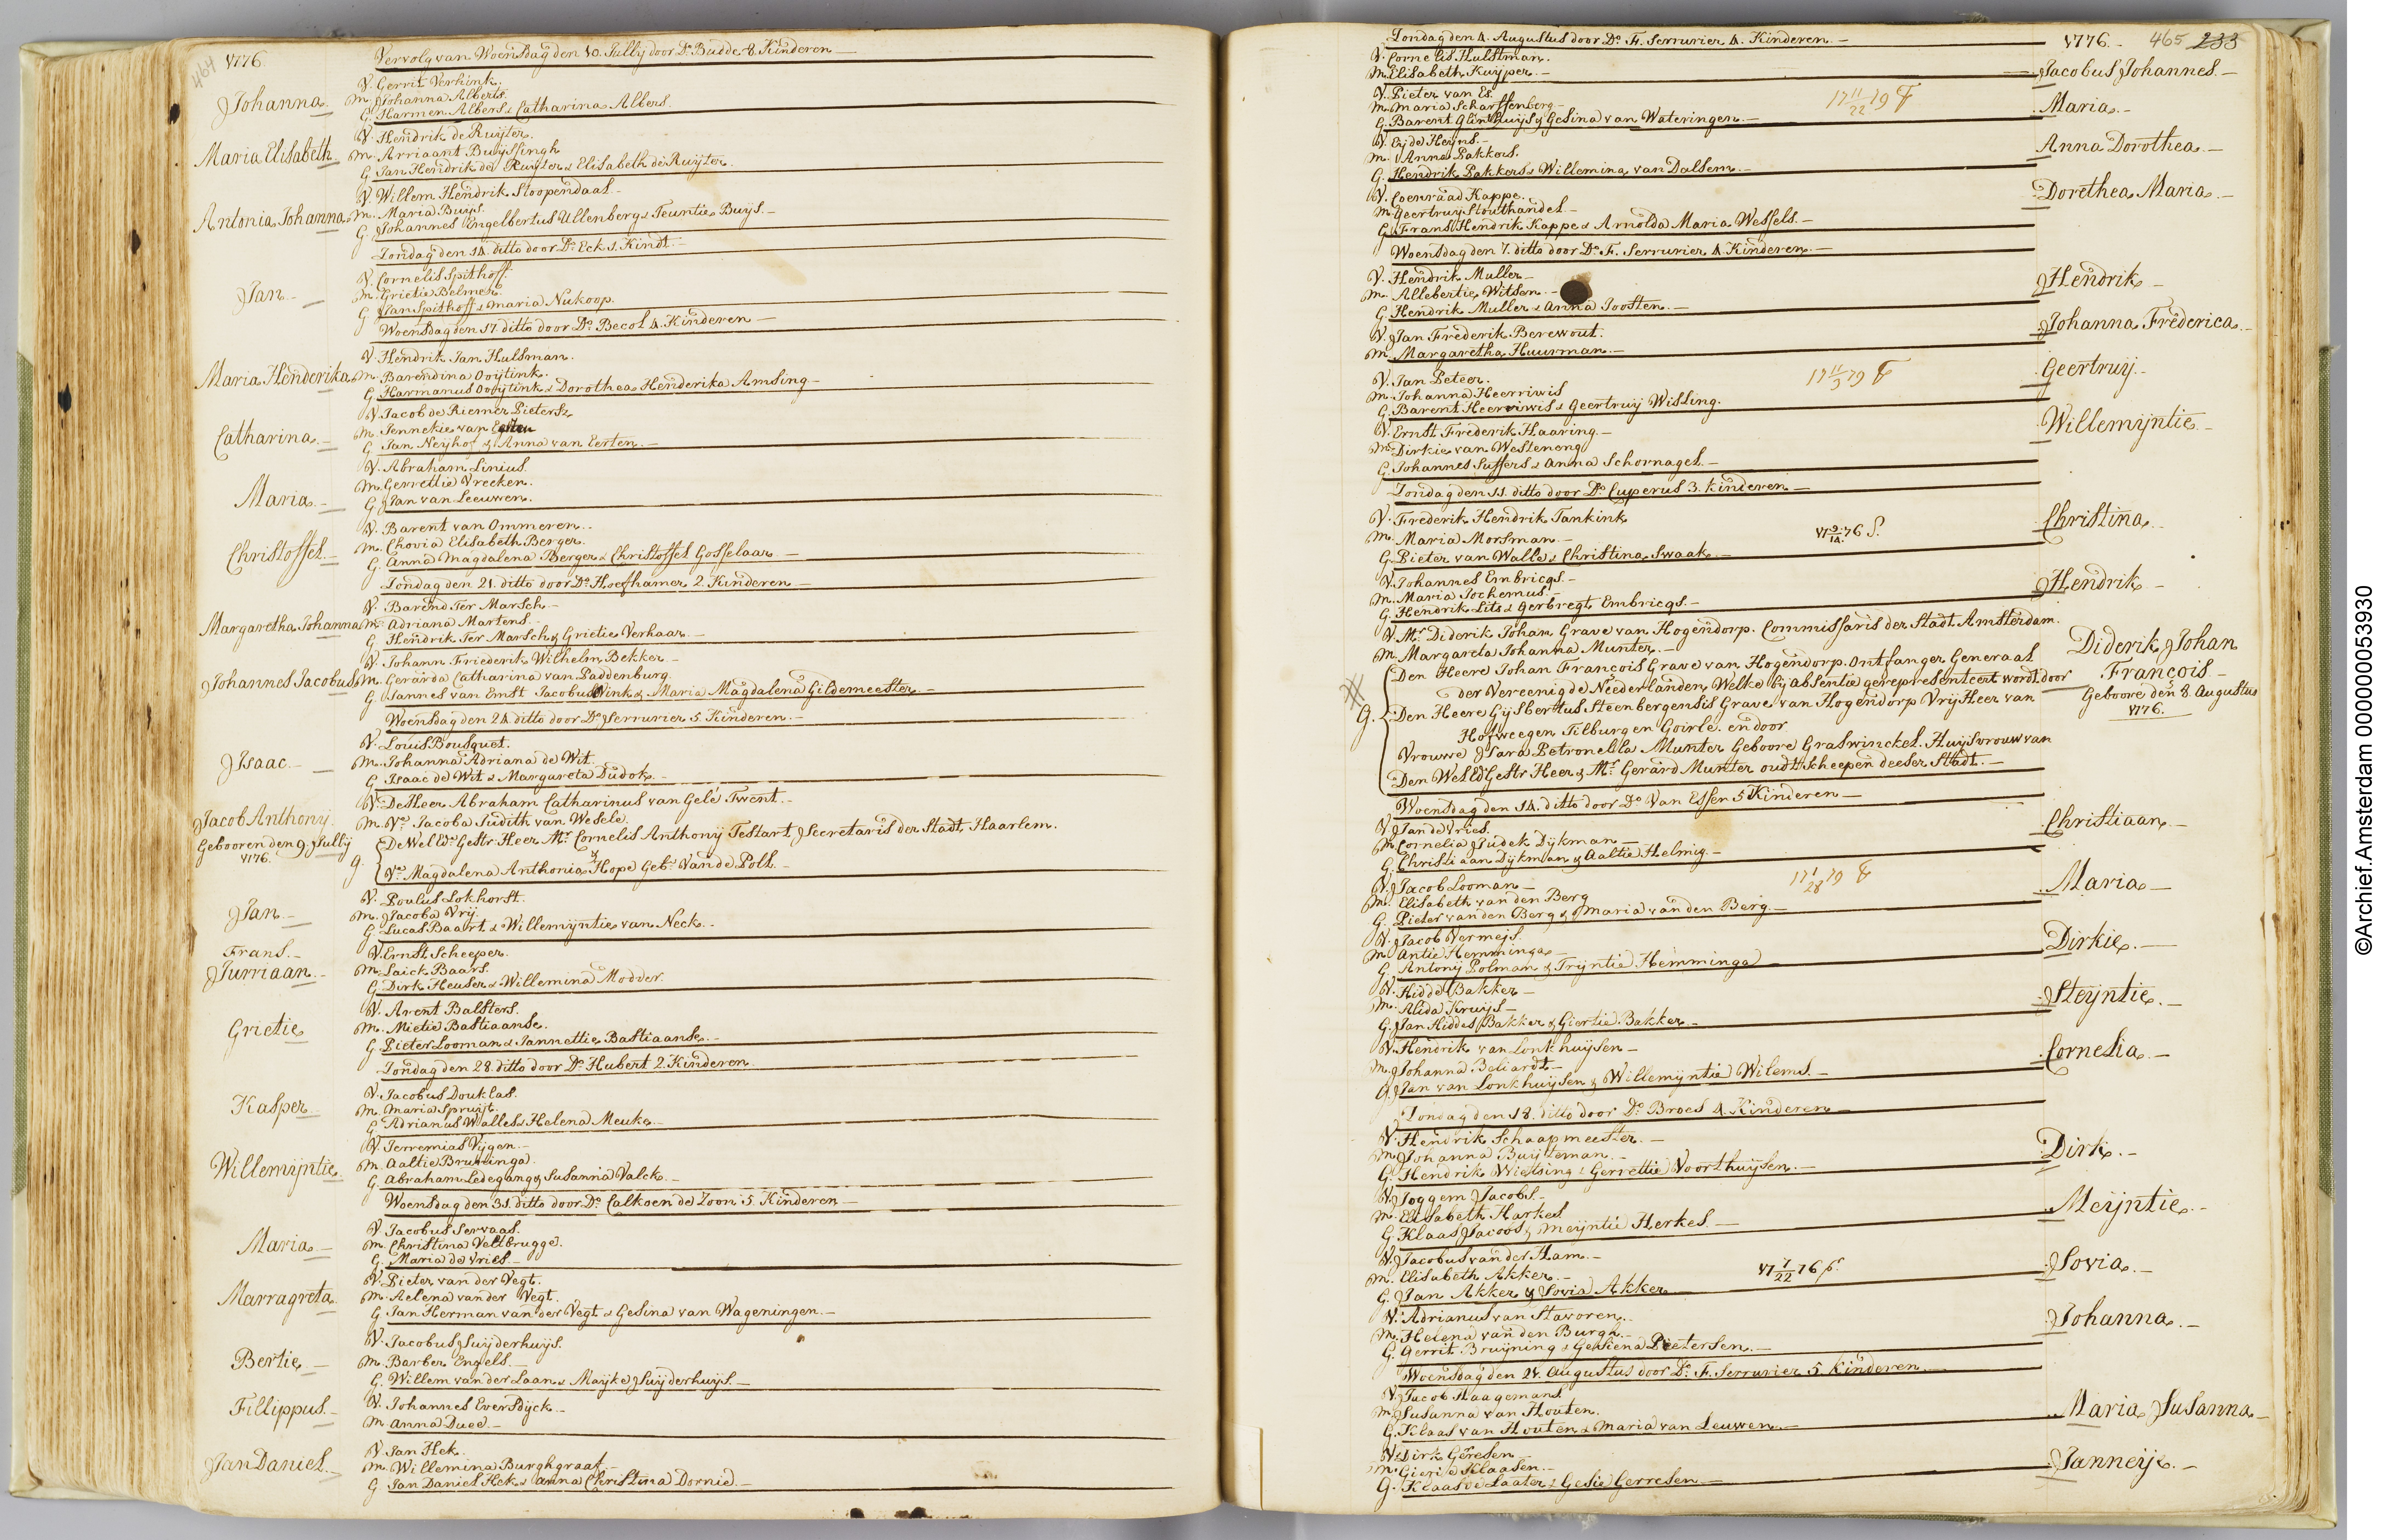 464
1776
Vervolg van Woensdag den 10. Jullij door Ds. Budde 8. Kinderen
Johanna
V. Gerrit Verhink.
M. Johanna Alberts.
G. Harmen Albers & Catharina Albers.
Maria Elisabeth
V. Hendrik de Ruijter.
M. Arriaant Buijssingh
G. Jan Hendrik de Ruijter & Elisabeth de Ruijter.
Antonia Johanna
V. Willem Hendrik Stoopendaal
M. Maria Buijs.
G. Johannes Engelbertus Ullenberg & Teuntie Buijs.
Zondag den 14. ditto door Ds. Eck 1. Kindt.
Jan
V. Cornelis Spithoff.
M. Grietie Belmer.
G. Jan Spithoff & Maria Nukoop.
Woensdag den 17. ditto door Ds. Becol 4. Kinderen
Maria Henderika
V. Hendrik Jan Hulsman.
M. Barendina Ooijtink.
G. Harmanus Ooijtink & Dorothea Henderika Amsing
Catharina
V. Jacob de Riemer Pietersz
M. Jennekie van Eerten
G. Jan Neijhof & Anna van Eerten.
Maria
V. Abraham Linius.
M. Gerrettie Vreeken.
G. Jan van Leeuwen.
Christoffel
V. Barent van Ommeren.
M. Chovia Elisabeth Berger.
G. Anna Magdalena Berger & Christoffel Gosselaar
Zondag den 21. ditto door Ds. Hoefhamer 2. Kinderen
Margaretha Johanna
V. Barend Ter Marsch
M. Adriana Martens.
G. Hendrik Ter Marsch & Grietie Verhaar
Johannes Jacobus
V. Johann Friederik Wilhelm Bekker
M. Gerarda Catharina van Paddenburg
G. Jannes van Ernst Jacobus Vink & Maria Magdalena Gildemeester
Woensdag den 24. ditto door Ds. Serrurier 5. Kinderen
Isaac
V. Louis Bousquet.
M. Johanna Adriana de Wit.
G. Isaac de Wit & Margareta Dudok.
Jacob Anthonij.
Gebooren den 9. Jullij
1776.
V. De Heer Abraham Catharinus van Gelé Twent.
M. Ve. Jacoba Judith van Wesele.
G. De Wel Ed. Gestr. Heer Mr. Cornelis Anthonij Testart, Secretaris der Stadt Haarlem.
Ve. Magdalena Anthonia Hope Geb. Van de Poll.
Jan
V. Poulus Lokhorst.
M. Jacoba Vrij.
G. Lucas Baart & Willemijntie van Neck.
Frans
Jurriaan
V. Ernst Scheeper.
M. Laick Baars.
G. Dirk Heuser & Willemina Modder.
Grietie
V. Arent Balsters.
M. Mietie Bastiaanse.
G. Pieter Looman & Jannettie Bastiaanse.
Zondag den 28. ditto door Ds. Hubert 2. Kinderen
Kasper
V. Jacobus Douklas.
M. Maria Spruijt.
G. Adrianus Walles & Helena Meuke.
Willemijntie
V. Jerremias Vijgen.
M. Aaltie Bruininga.
G. Abraham Ledegang & Susannia Valck.
Woensdag den 31. ditto door Ds. Calkoen de Zoon 5. Kinderen
Maria
V. Jacobus Servaas.
M. Christina Veltbrugge.
G. Maria de Vries
Marragreta
V. Pieter van der Vegt.
M. Aelena van der Vegt.
G. Jan Herman van der Vegt & Gesina van Wageningen.
Bertie
V. Jacobus Suijderhuijs.
M. Barber Engels.
G. Willem van der Laan & Maijke Suijderhuijs.
Fillippus
V. Johannes Eversdijck
M. Anna Dued.
Jan Daniel
V. Jan Hek.
M. Willemina Burghgraaf
G. Jan Daniel Hek & Anna Christina Dornied.
1776. 465 233
Zondag den 4. Augustus door Ds. F. Serrurier 4. Kinderen
V. Cornelis Hulstman.
M. Elisabeth Kuijper.
Jacobus Johannes.
V. Pieter van Es.
M. Maria Scharffenberg.
G. Barent Glinthuijs & Gesina van Wateringen.
17 11/22 79
Maria.
V. Eijde Heijns.
M. Anna Pakkers.
G. Hendrik Pakkers & Willemina van Dalsem.
Anna Dorothea.
V. Coenraad Kappe.
M. Geertruij Stouthandel
G. Frans Hendrik Kappe & Arnolda Maria Wessels.
Dorethea Maria.
Woensdag den 7. ditto door Ds. F. Serrurier 4. Kinderen.
V. Hendrik Muller
M. Allebertie Witsen.
G. Hendrik Muller & Anna Joosten.
Hendrik
V. Jan Frederik Berewout.
M. Margaretha Huurman.
Johanna Frederica.
V. Jan Peteer.
M. Johanna Heerriwis
G. Barent Heerriwis & Geertruij Wissing.
17 11/3 79
Geertruij.
V. Ernst Frederik Haaring.
M. Dirkie van Westeneng
G. Johannes Suffers & Anna Schornagel.
Willemijntie
Zondag den 11. ditto door Ds. Cuperus 3. Kinderen
V. Frederik Hendrik Tankink
M. Maria Morsman
G. Pieter van Walle & Christina Swaak.
17 9/14 76 S.
Christina
V. Johannes Embricqs.
M. Maria Jochemus.
G. Hendrik Lits & Gerbregt Embricqs.
Hendrik
V. Mr. Diderik Johan Grave van Hogendorp. Commissaris der Stadt Amsterdam.
M. Margareta Johanna Munter.
G. Den Heere Johan François Grave van Hogendorp. Ontfanger Generaal
der Vereenigde Neederlanden, Welke bij Absentie gerepresenteert wordt door
Den Heere Gijsbertus Steenbergensis Grave van Hogendorp Vrij Heer van
Hofweegen Tilburg en Goirle. en door
Vrouwe Sara Petronella Munter Geboore Graswinckel. Huijsvrouw van
Den Wel Ed. Gestr. Heer & Mr. Gerard Munter oudt scheepen deeser Stadt.
Diderik Johan
François
Geboore den 8 Augustus
1776.
Woensdag den 14. ditto door Ds. Van Essen 5 Kinderen
V. Jan de Vries.
M. Cornelia Judek Dijkman
G. Christiaan Dijkman & Aaltie Helmig.
Christiaan
V. Jacob Looman
M. Elisabeth van den Berg
G. Pieter van den Berg & Maria van den Berg.
17 1/28 79
Maria
V. Jacob Vermejs.
M. Antie Hemminga
G. Antonij Polman & Trijntie Hemminga
Dirkie.
V. Hidde Bakker
M. Alida Kruijs
G. Jan Hiddes Bakker & Giertie Bakker
Steijntie.
V. Hendrik van Lonkhuijsen
M. Johanna Beliardt
G. Jan van Lonkhuijsen & Willemijntie Wilems.
Cornelia.
Zondag den 18. ditto door Ds. Broes 4. Kinderen
V. Hendrik Schaapmeester.
M. Johanna Buijteman.
G. Hendrik Wietsing & Gerrettie Voorthuijsen.
Dirk.
V. Joggem Jacobs.
M. Elisabeth Harkes
G. Klaas Jacobs & Meijntie Herkes.
Meijntie.
V. Jacobus van der Ham.
M. Elisabeth Akker.
G. Jan Akker & Sovia Akker
17 7/22 76 S.
Sovia.
V. Adrianus van Stavoren.
M. Helena van den Burgh.
G. Gerrit Bruijning & Gesiena Pietersen.
Johanna.
Woensdag den 21. Augustus door Ds. F. Serrurier 5. Kinderen
V. Jacob Haagemans
M. Susanna van Houten.
G. Klaas van Houten & Maria van Leuwen.
Maria Susanna
V. Dirk Geresen
M. Gierie Klaasen.
G. Klaas de Laater & Gesie Gerresen
Janneije.
©Archief.Amsterdam 00000053930